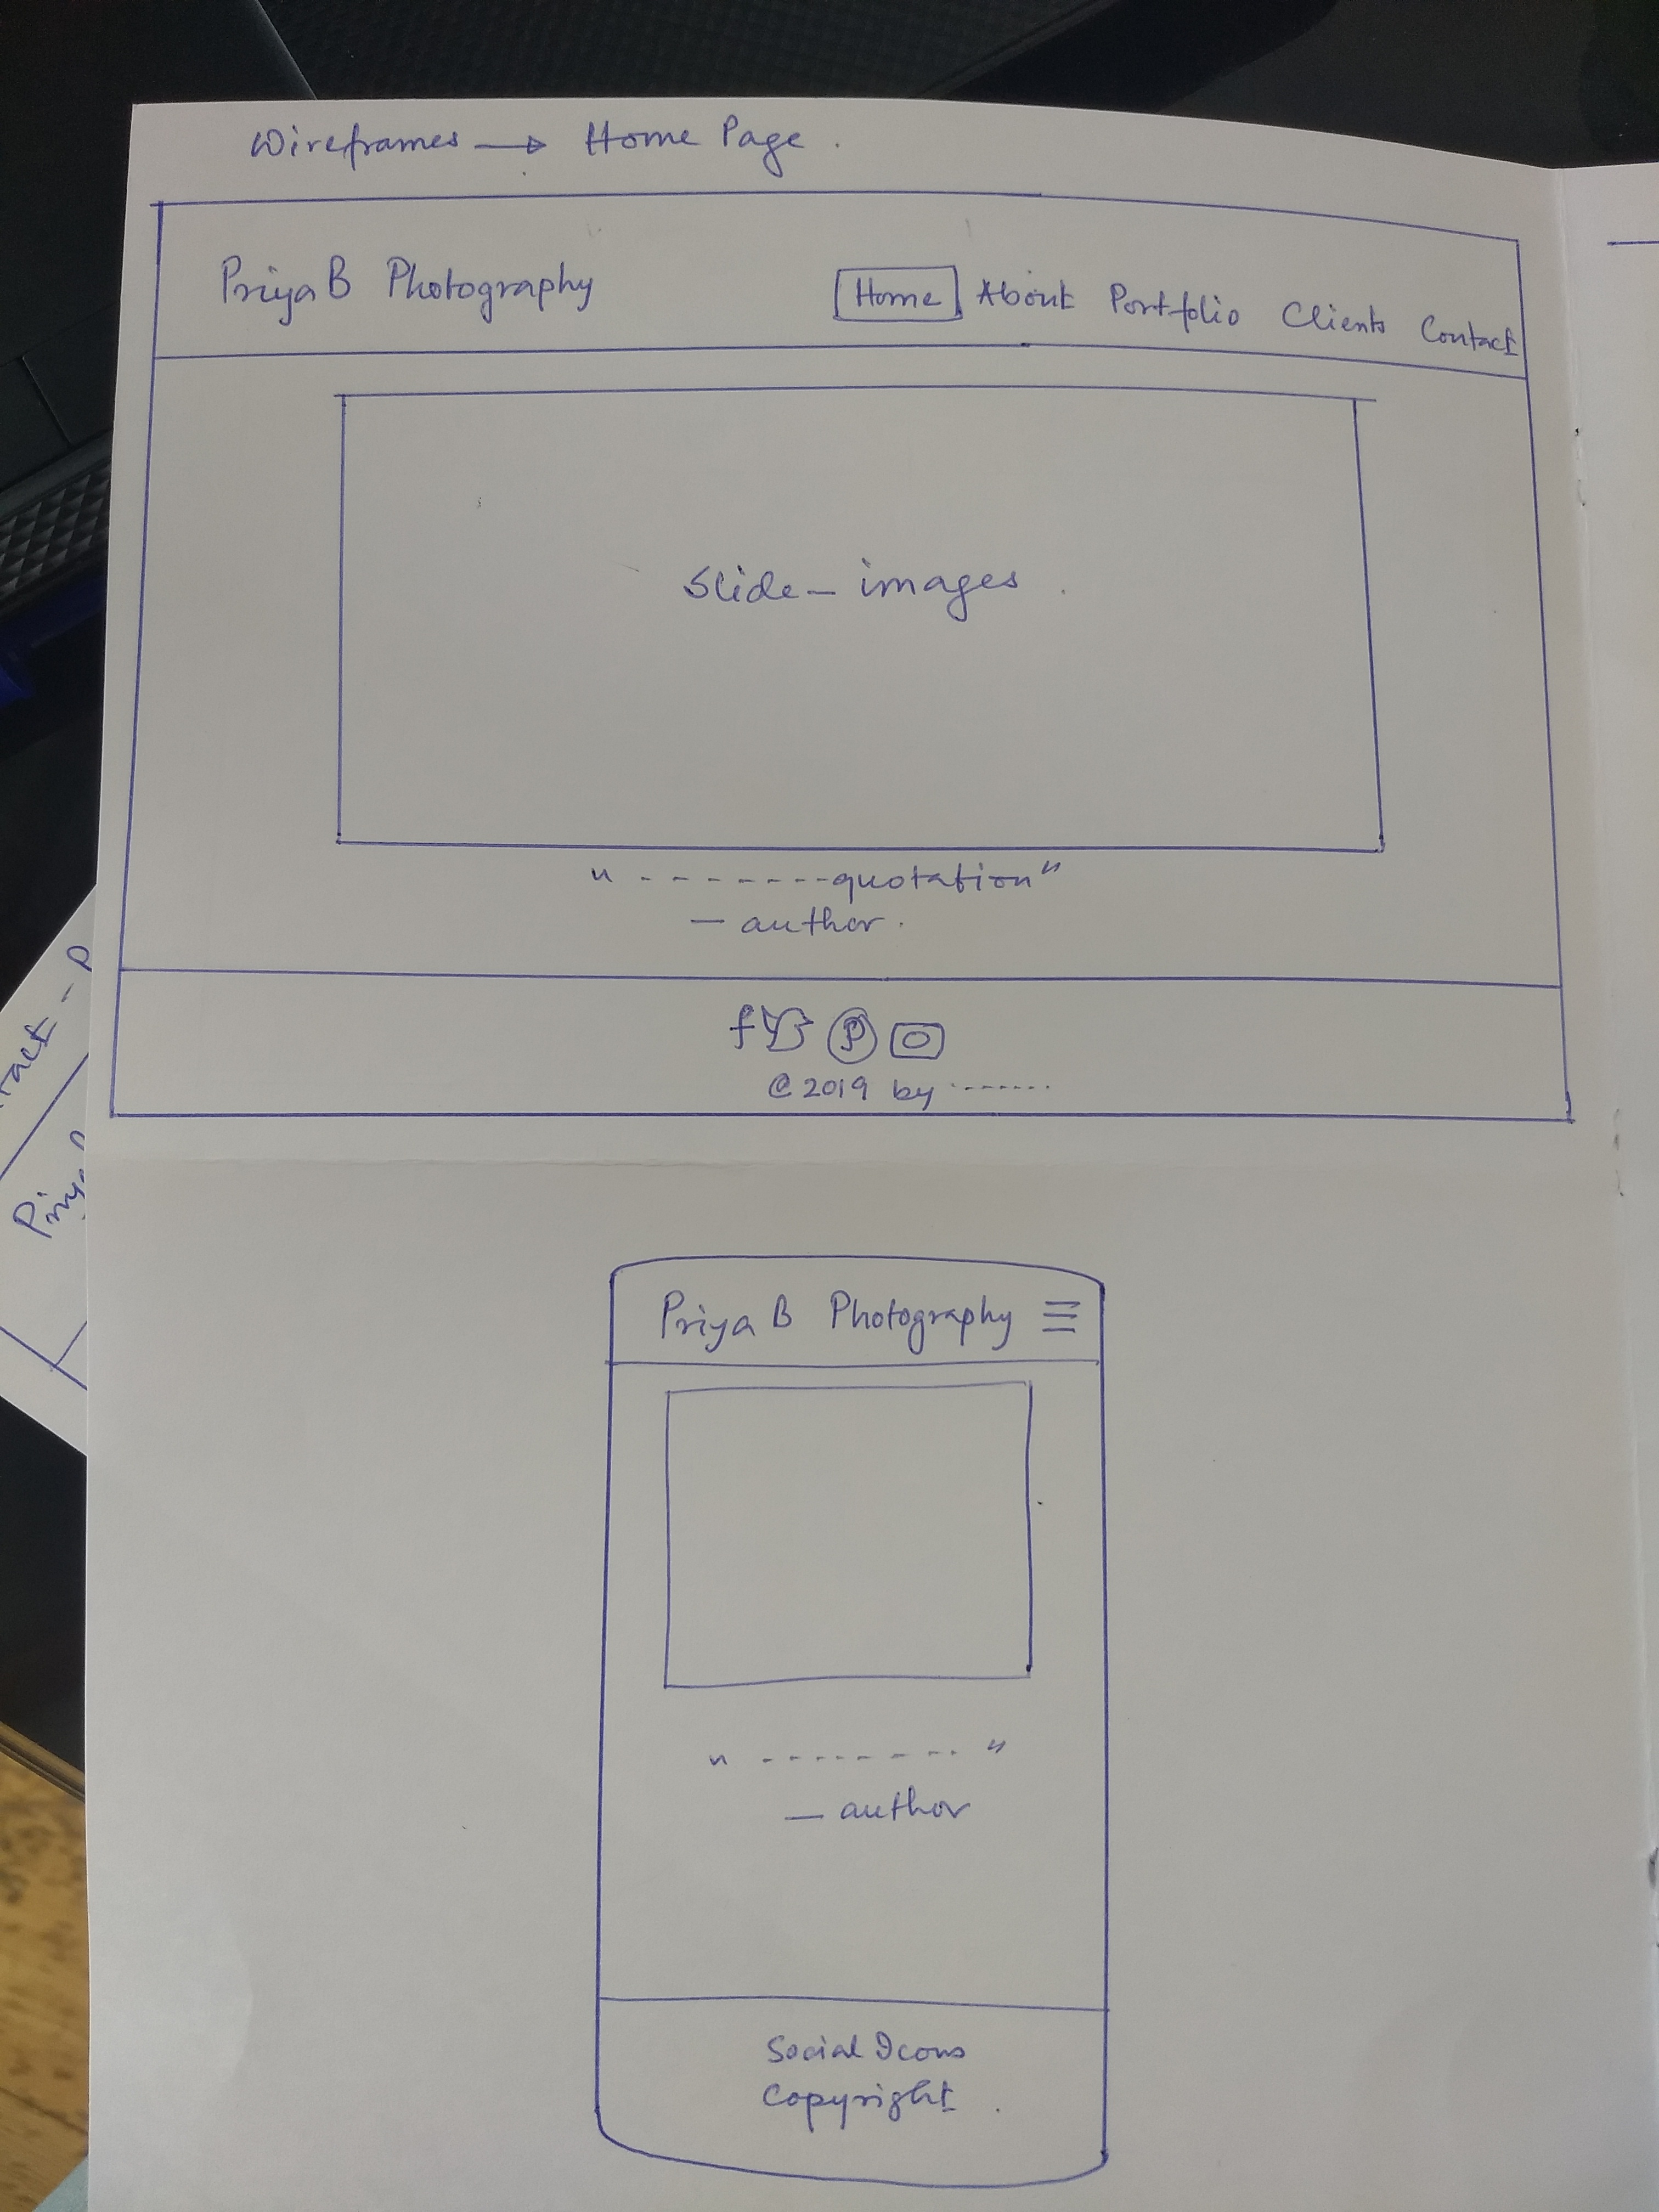 Wireframes → Home Page.
Priya B Photography
Home About Portfolio Clients Contact
Slide - images.
" - - - - - - - - quotation"
— author.
f P
@ 2019 by - - - - - - -
Priya B Photography
" - - - - - - - - "
— author
Social Icons
Copyright.